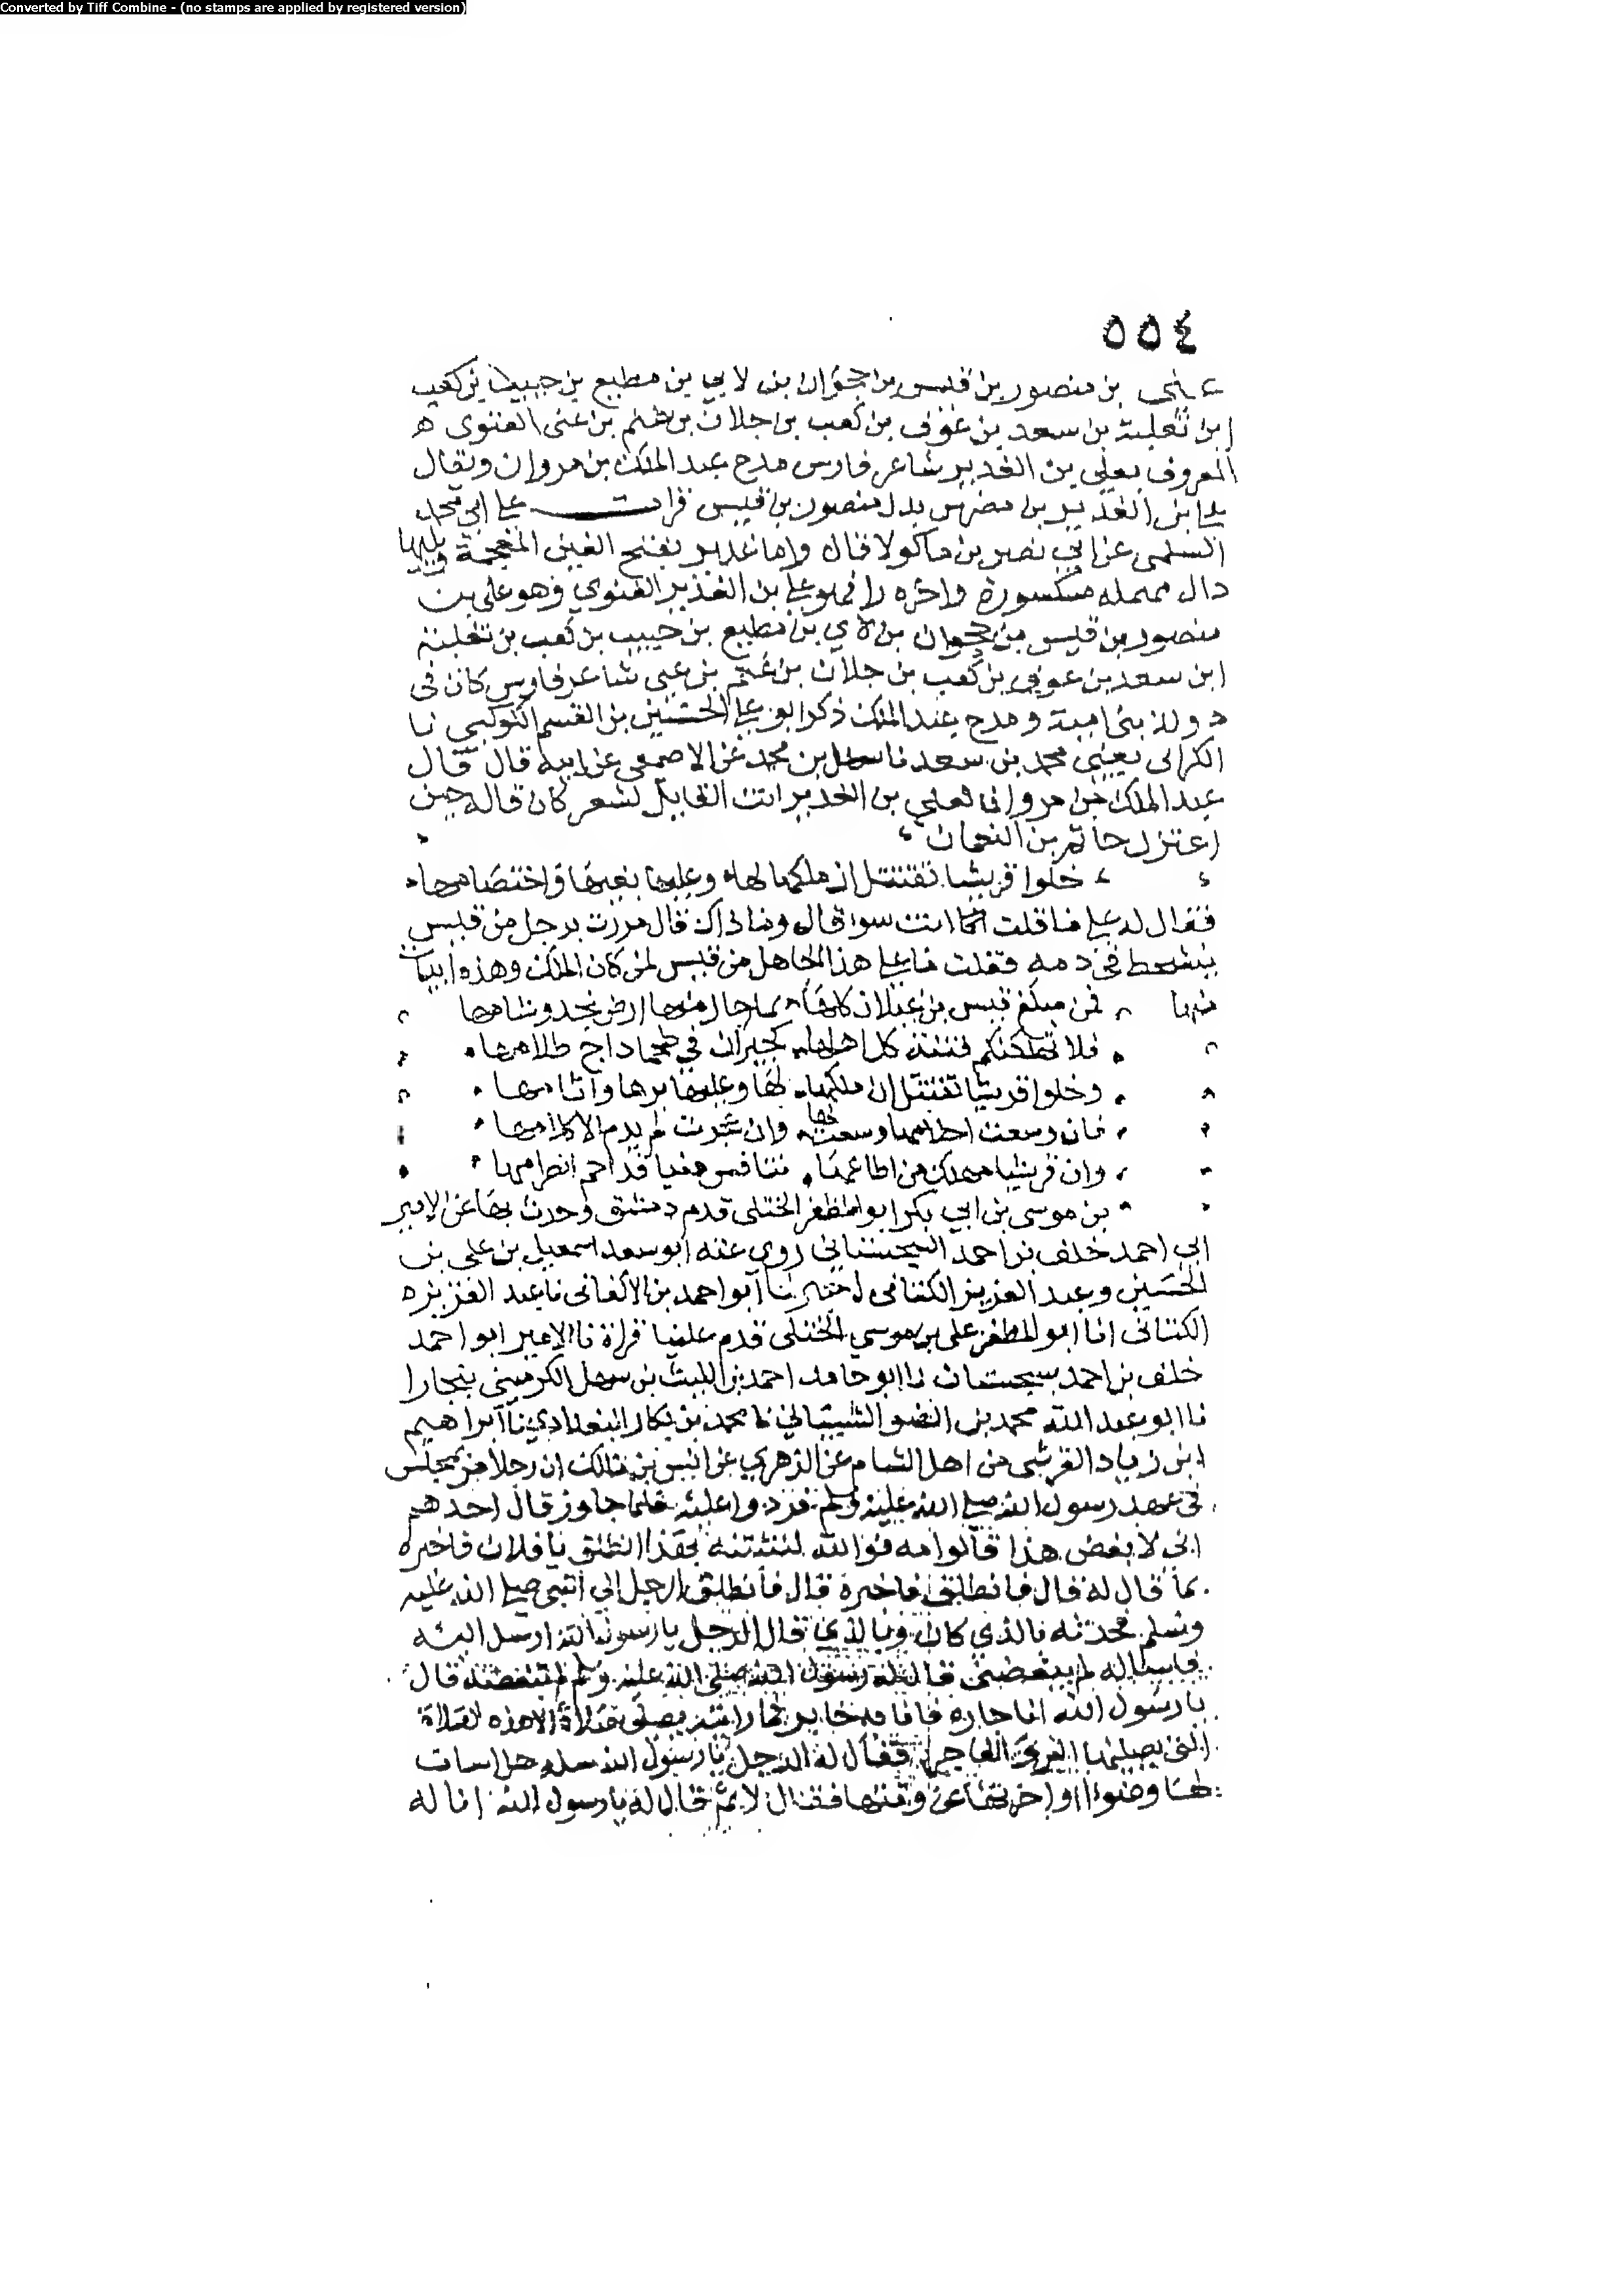 Converted by Tiff Combine - (no stamps are applied by registered version)
٥٥٤
علي بن منصور بن قيس بن حجوان بن لاي بن مطيع بن حبيب بن كعب
ابن ثعلبة بن سعد بن عوف بن كعب بن جلان بن غنم بن غنى الغنوى ه
المعروف بعلى بن الغدير شاعر فارس مدح عبد الملك بن مروان ويقال
على بن الغدير بن مضرس بدل منصور بن قيس قرات على ابي محمد
السلمى عن ابي نصر بن ماكولا قال واما غدير بفتح الغين المعجمة ويليها
دال مهمله مكسورة واخره را فهو على بن الغدير الغنوي وهو على بن
منصور بن قيس بن حجوان بن لاي بن مطيع بن حبيب بن كعب بن ثعلبة
ابن سعد بن عوف بن كعب بن جلان بن غنم بن غنى شاعر فارس كان فى
دولة بنى امية ومدح عبد الملك ذكر ابو على الحسين بن القسم الكوكبي نا
الكراني يعنى محمد بن سعد نا سهل بن محمد عن الاصمعى عن ابيه قال قال
عبد الملك بن مروان لعلي بن الغدير انت القايل لشعر كان قاله حين
اعتزل حاتم بن النعمان
خلوا قريشا تقتتل ان ملكها لها وعليها بغيها واختصامها
فقال له على ما قلت انما انت سوا قال وما ذاك قال مررت برجل من قيس
يتشحط فى دمه فقلت ما على هذا الجاهل من قيس لمن كان الملك وهذه ابيات
منها فمن مبلغ قيس بن عيلان كلها بما حال منها ارض نجد وشامها
فلا تهلكنكم فتنة كل اهلها كحيران في طخيا داج ظلامها
وخلوا قريشا تقتتل ان ملكها لها وعليها برها واثامها
فان وسعت احلامها وسعت لها وان عجزت لم يدم الا كلامها
وان قريشا مهلك من اطاعها تنافس دنيا قد احم انصرامها
بن موسى بن ابي بكر ابو المظفر الختلى قدم دمشق وحدث بها عن الامير
ابي احمد خلف بن احمد السجستانى روى عنه ابو سعد اسمعيل بن على بن
الحسين وعبد العزيز الكتانى اخبرنا ابو احمد بن الأكفانى نا عبد العزيز ه
الكتانى انا ابو المظفر على بن موسي الختلى قدم علينا قراة نا الامير ابو احمد
خلف بن احمد بسجستان نا ابو حامد احمد بن الليث بن سهل الكرميني ببخارا
نا ابو عبد الله محمد بن الضو الشيباني نا محمد بن بكار البغدادي نا ابراهيم
ابن زياد القرشى من اهل الشام عن الزهري عن انس بن مالك ان رجلا مر بمجلس
فى عهد رسول الله صلى الله عليه وسلم فردوا عليه فلما جاوز قال احدهم
انى لابغض هذا قالوا مه فوالله لننبئنه بهذا انطلق يا فلان فاخبره
بما قال له قال فانطلق فاخبره قال فانطلق الرجل الى النبى صلى الله عليه
وسلم فحدثه بالذى كان وبالذي قال الرجل يا رسول الله ارسل اليه
فاساله لم يبغضنى قال له رسول الله صلى الله عليه وسلم لم تبغضه قال
يا رسول الله انا جاره فانا به خابر ما رايته يصلى صلاة الا هذه الصلاة
التى يصليها البر والفاجر فقال له الرجل يا رسول الله سله هل اسات
لها وضوءا او اخرتها عن وقتها فقال لا ثم قال له يا رسول الله انا له